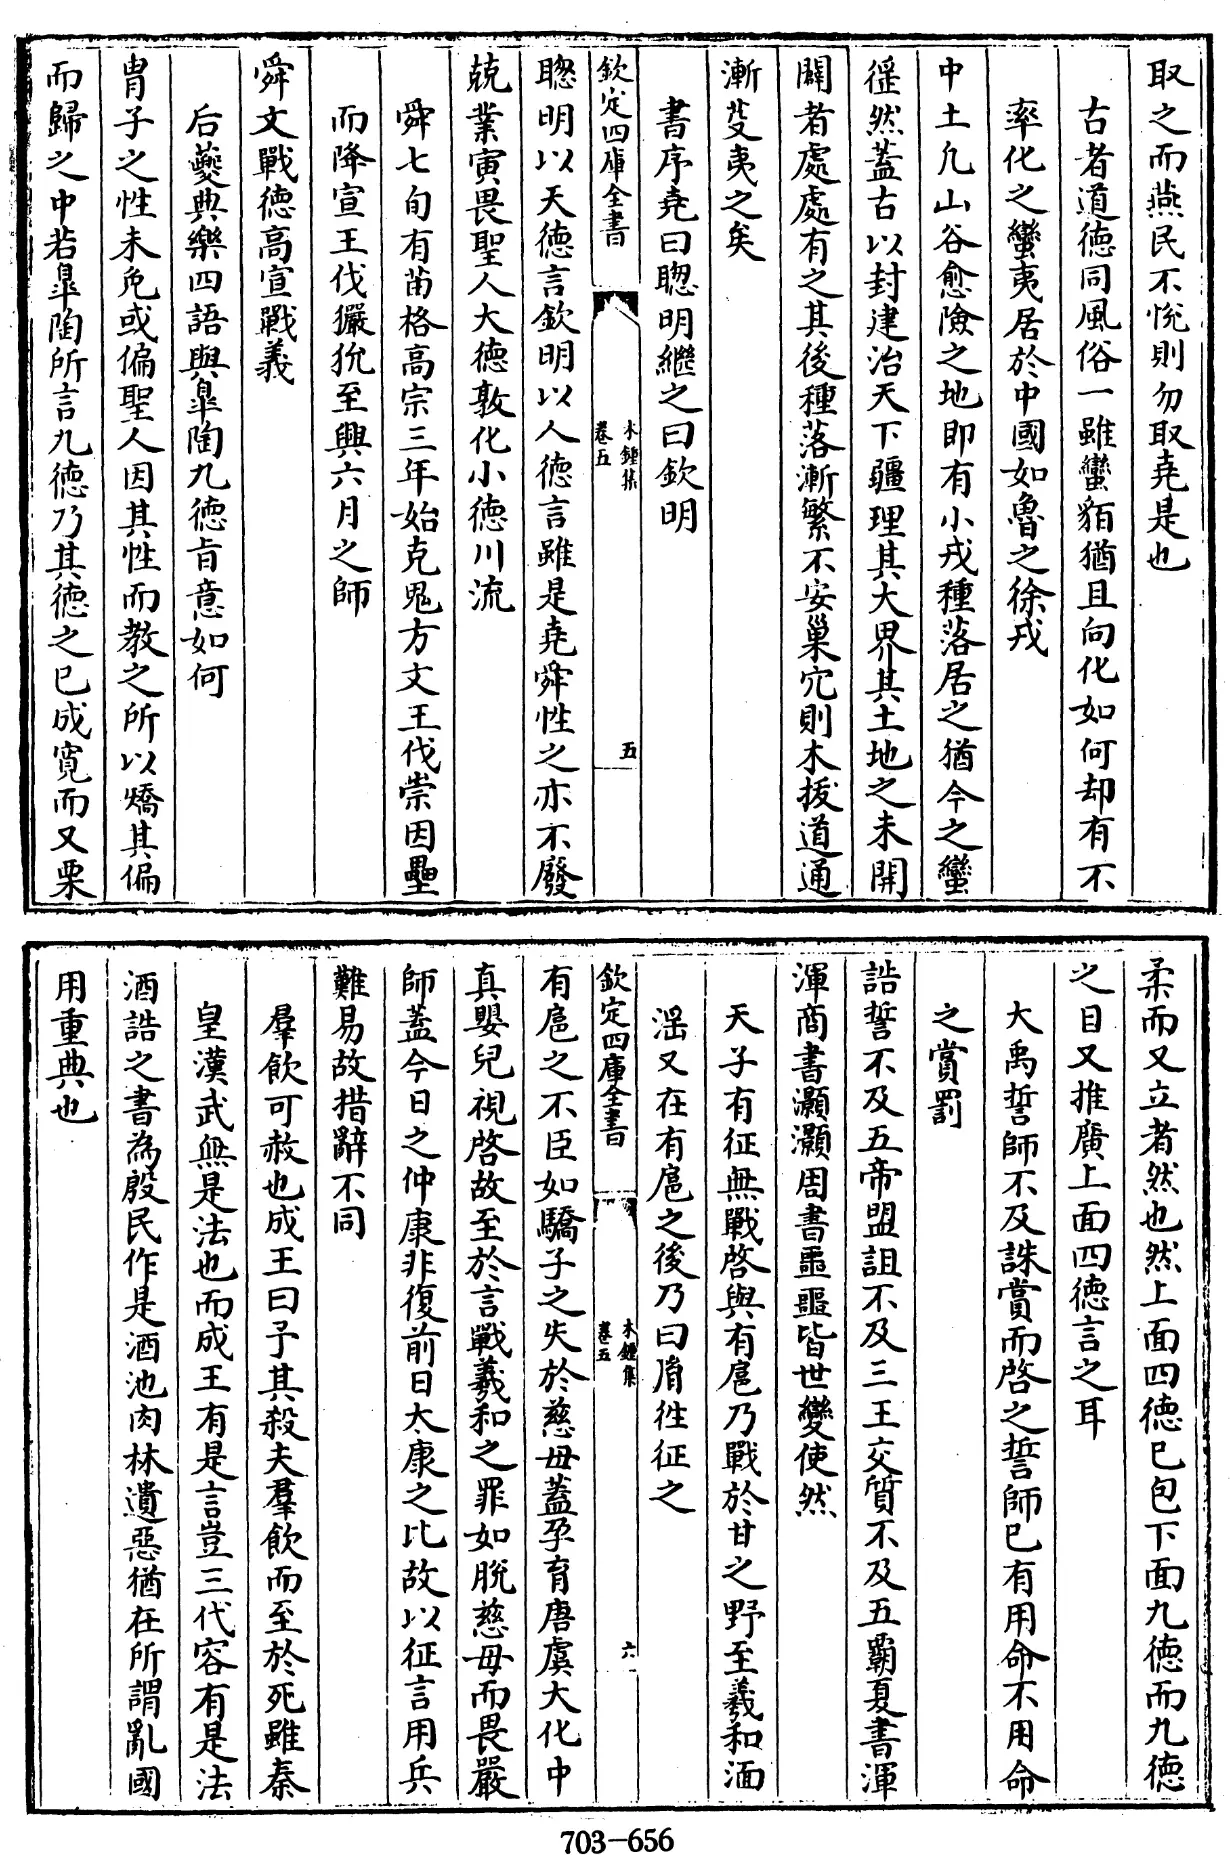 取之而燕民不悅則勿取堯是也
古者道德同風俗一雖蠻貊猶且向化如何却有不
率化之蠻夷居於中國如魯之徐戎
中土凡山谷愈險之地即有小戎種落居之猶今之蠻
徭然蓋古以封建治天下疆理其大界其土地之未開
闢者處處有之其後種落漸繁不安巢穴則木拔道通
漸芟夷之矣
書序堯曰聰明繼之曰欽明
欽定四庫全書
木鍾集
卷五
五
聰明以天德言欽明以人德言雖是堯舜性之亦不廢
兢業寅畏聖人大德敦化小德川流
舜七旬有苗格高宗三年始克鬼方文王伐崇因壘
而降宣王伐玁狁至興六月之師
舜文戰德高宣戰義
后夔典樂四語與臯陶九德旨意如何
胄子之性未免或偏聖人因其性而教之所以矯其偏
而歸之中若臯陶所言九德乃其德之已成寛而又栗
柔而又立者然也然上面四德已包下面九德而九德
之目又推廣上面四德言之耳
大禹誓師不及誅賞而啓之誓師已有用命不用命
之賞罰
誥誓不及五帝盟詛不及三王交質不及五霸夏書渾
渾商書灝灝周書噩噩皆世變使然
天子有征無戰啓與有扈乃戰於甘之野至羲和湎
淫又在有扈之後乃曰胤往征之
欽定四庫全書
木鍾集
卷五
六
有扈之不臣如驕子之失於慈母蓋孕育唐虞大化中
真嬰兒視啓故至於言戰羲和之罪如脫慈母而畏嚴
師蓋今日之仲康非復前日太康之比故以征言用兵
難易故措辭不同
羣飲可赦也成王曰予其殺夫羣飲而至於死雖秦
皇漢武無是法也而成王有是言豈三代容有是法
酒誥之書為殷民作是酒池肉林遺惡猶在所謂亂國
用重典也
703-656